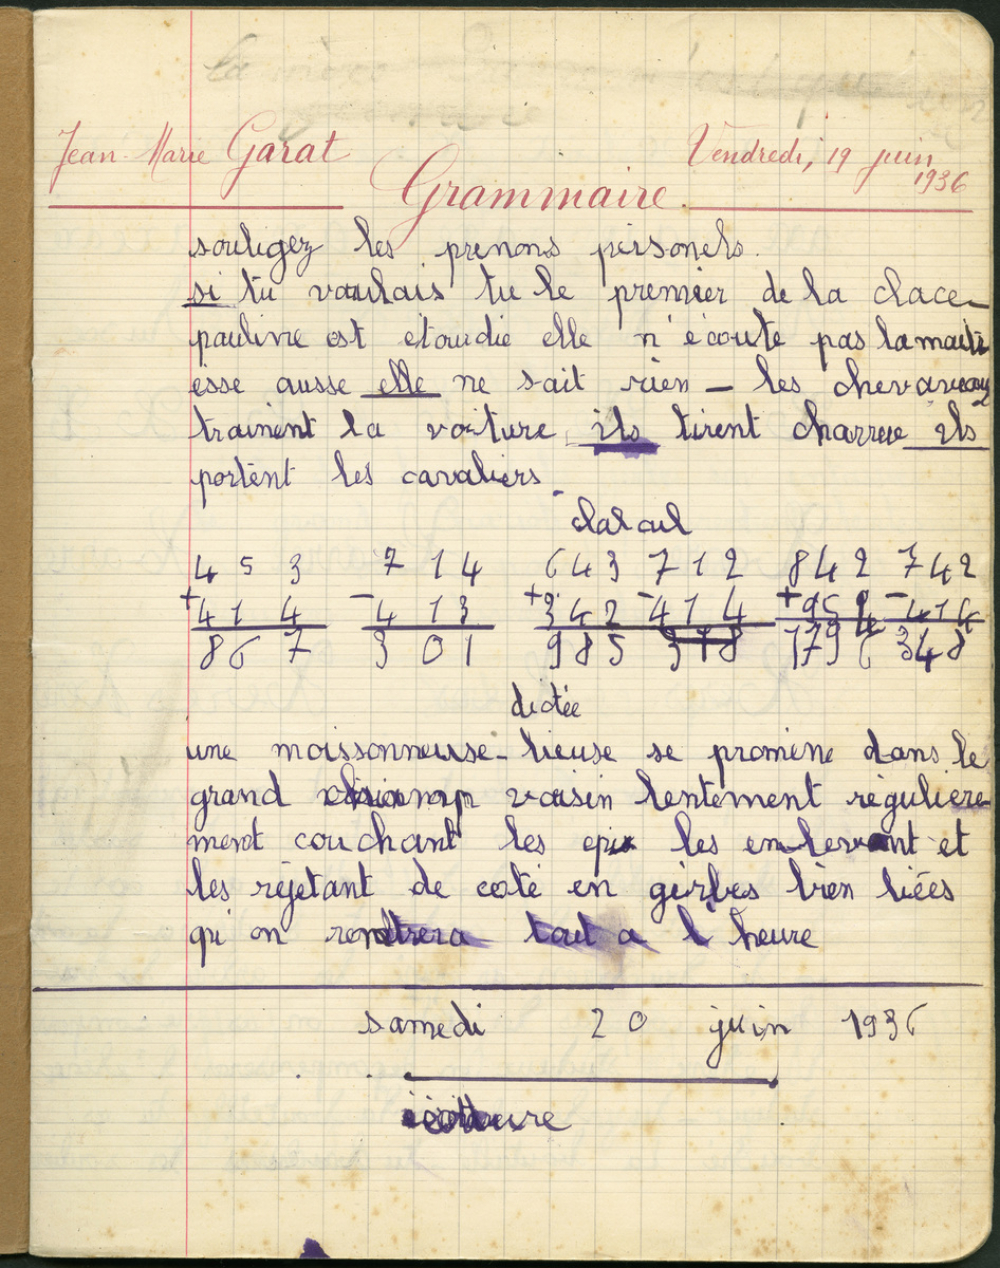 Jean-Marie Garat
Vendredi, 19 juin
1936
Grammaire
souligez les prenons personels.
si tu voulais tu le premier de la clace
pauline est etourdie elle n'écoute pas la maitr
esse ausse elle ne sait rien – les chevaveaux
trainent la voiture ils tirent charrue ils
portent les cavaliers
calcul
4 5 3 7 1 4 6 4 3 7 1 2 8 4 2 7 4 2
+ 4 1 4 - 4 1 3 + 3 4 2 - 4 1 4 + 9 5 4 - 4 1 4
8 6 7 3 0 1 9 8 5 3 1 8 1 7 9 6 3 4 8
dictée
une moissonneuse-lieuse se promène dans le
grand champ voisin lentement régulière
ment couchant les epis les enlevant et
les rejetant de coté en gerbes bien liées
qi on rentrera tout a l'heure
samedi 20 juin 1936